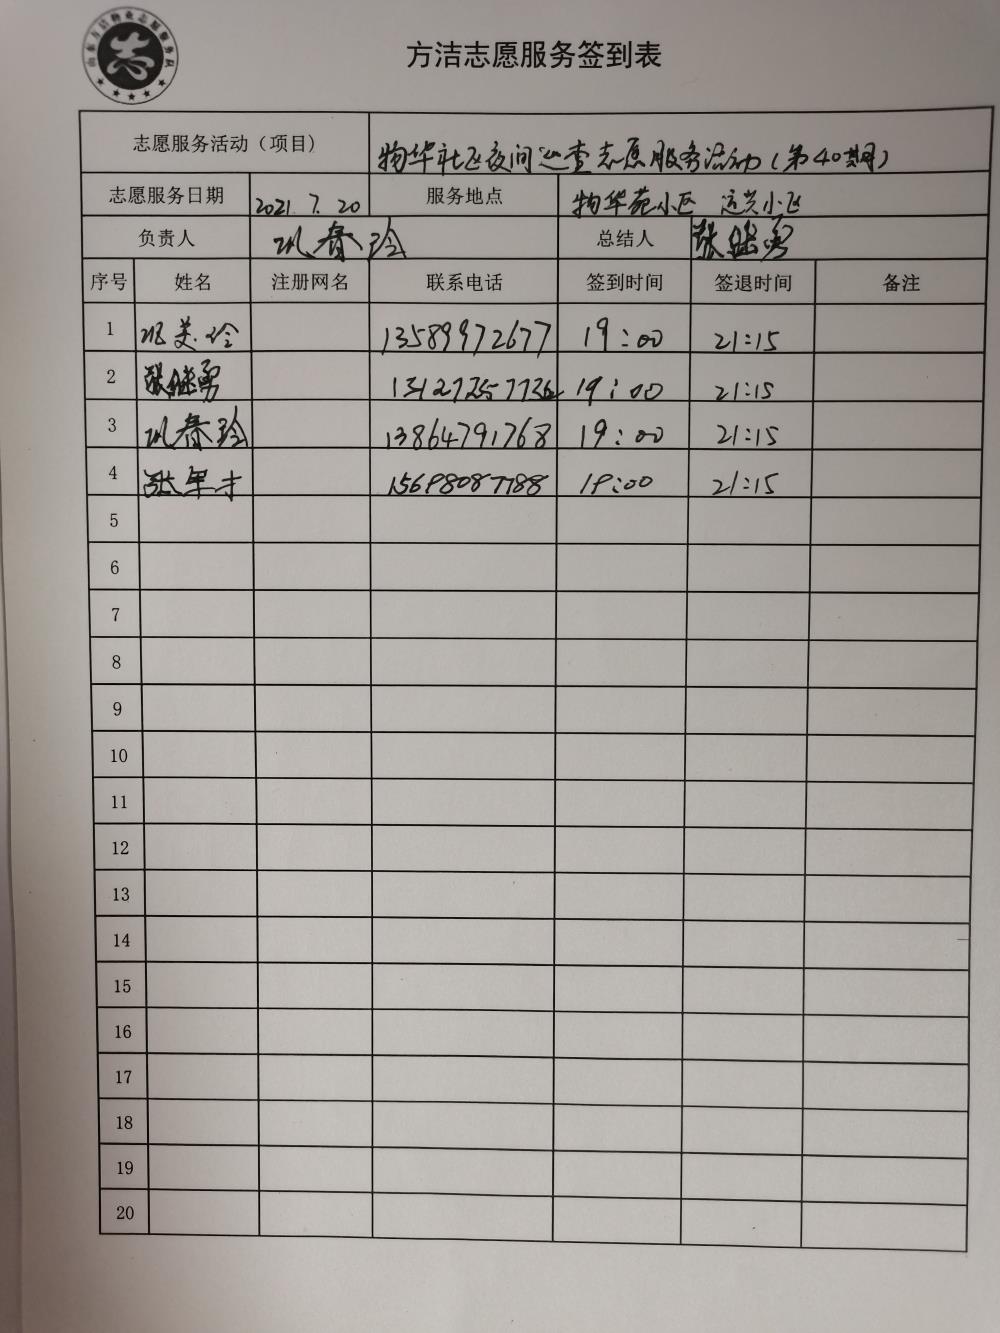 山东方洁物业志愿服务队
方洁志愿服务签到表
志愿服务活动（项目） 物华社区夜间巡查志愿服务活动（第40期）
志愿服务日期 2021.7.20 服务地点 物华苑小区 运兴小区
负责人 春玲 总结人 张继勇
序号 姓名 注册网名 联系电话 签到时间 签退时间 备注
1 美玲 13589972677 19:00 21:15
2 张继勇 19:00 21:15
3 春玲 13864791768 19:00 21:15
4 张军才 19:00 21:15
5
6
7
8
9
10
11
12
13
14
15
16
17
18
19
20